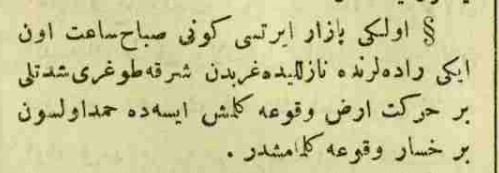 § اولكی بازار ایرتسی كونی صباح ساعت اون
ایكی راده‌لرنده نازللیده غربدن شرقه طوغری شدتلی
بر حركت ارض وقوعه كلمش ایسه‌ده حمد اولسون
بر خسار وقوعه كلمامشدر .